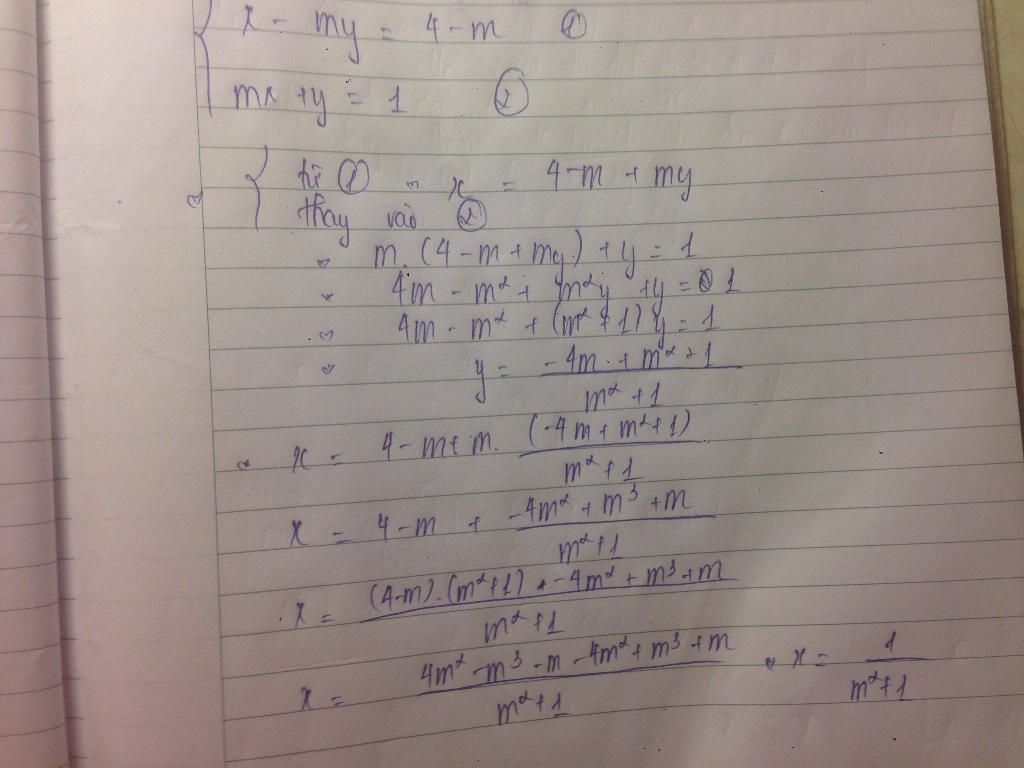 x - my = 4 - m ①
mx + y = 1 ②
⇔ từ ① ⇔ x = 4 - m + my
thay vào ②
⇔ m.(4 - m + my) + y = 1
⇔ 4m - m² + m²y + y = 1
⇔ 4m - m² + (m² + 1)y = 1
⇔ y = (-4m + m² + 1) / (m² + 1)
⇔ x = 4 - m + m. (-4m + m² + 1) / (m² + 1)
x = 4 - m + (-4m² + m³ + m) / (m² + 1)
x = ((4-m).(m²+1) + -4m² + m³ + m) / (m² + 1)
x = (4m² - m³ - m - 4m² + m³ + m) / (m² + 1) ⇔ x = 1 / (m² + 1)